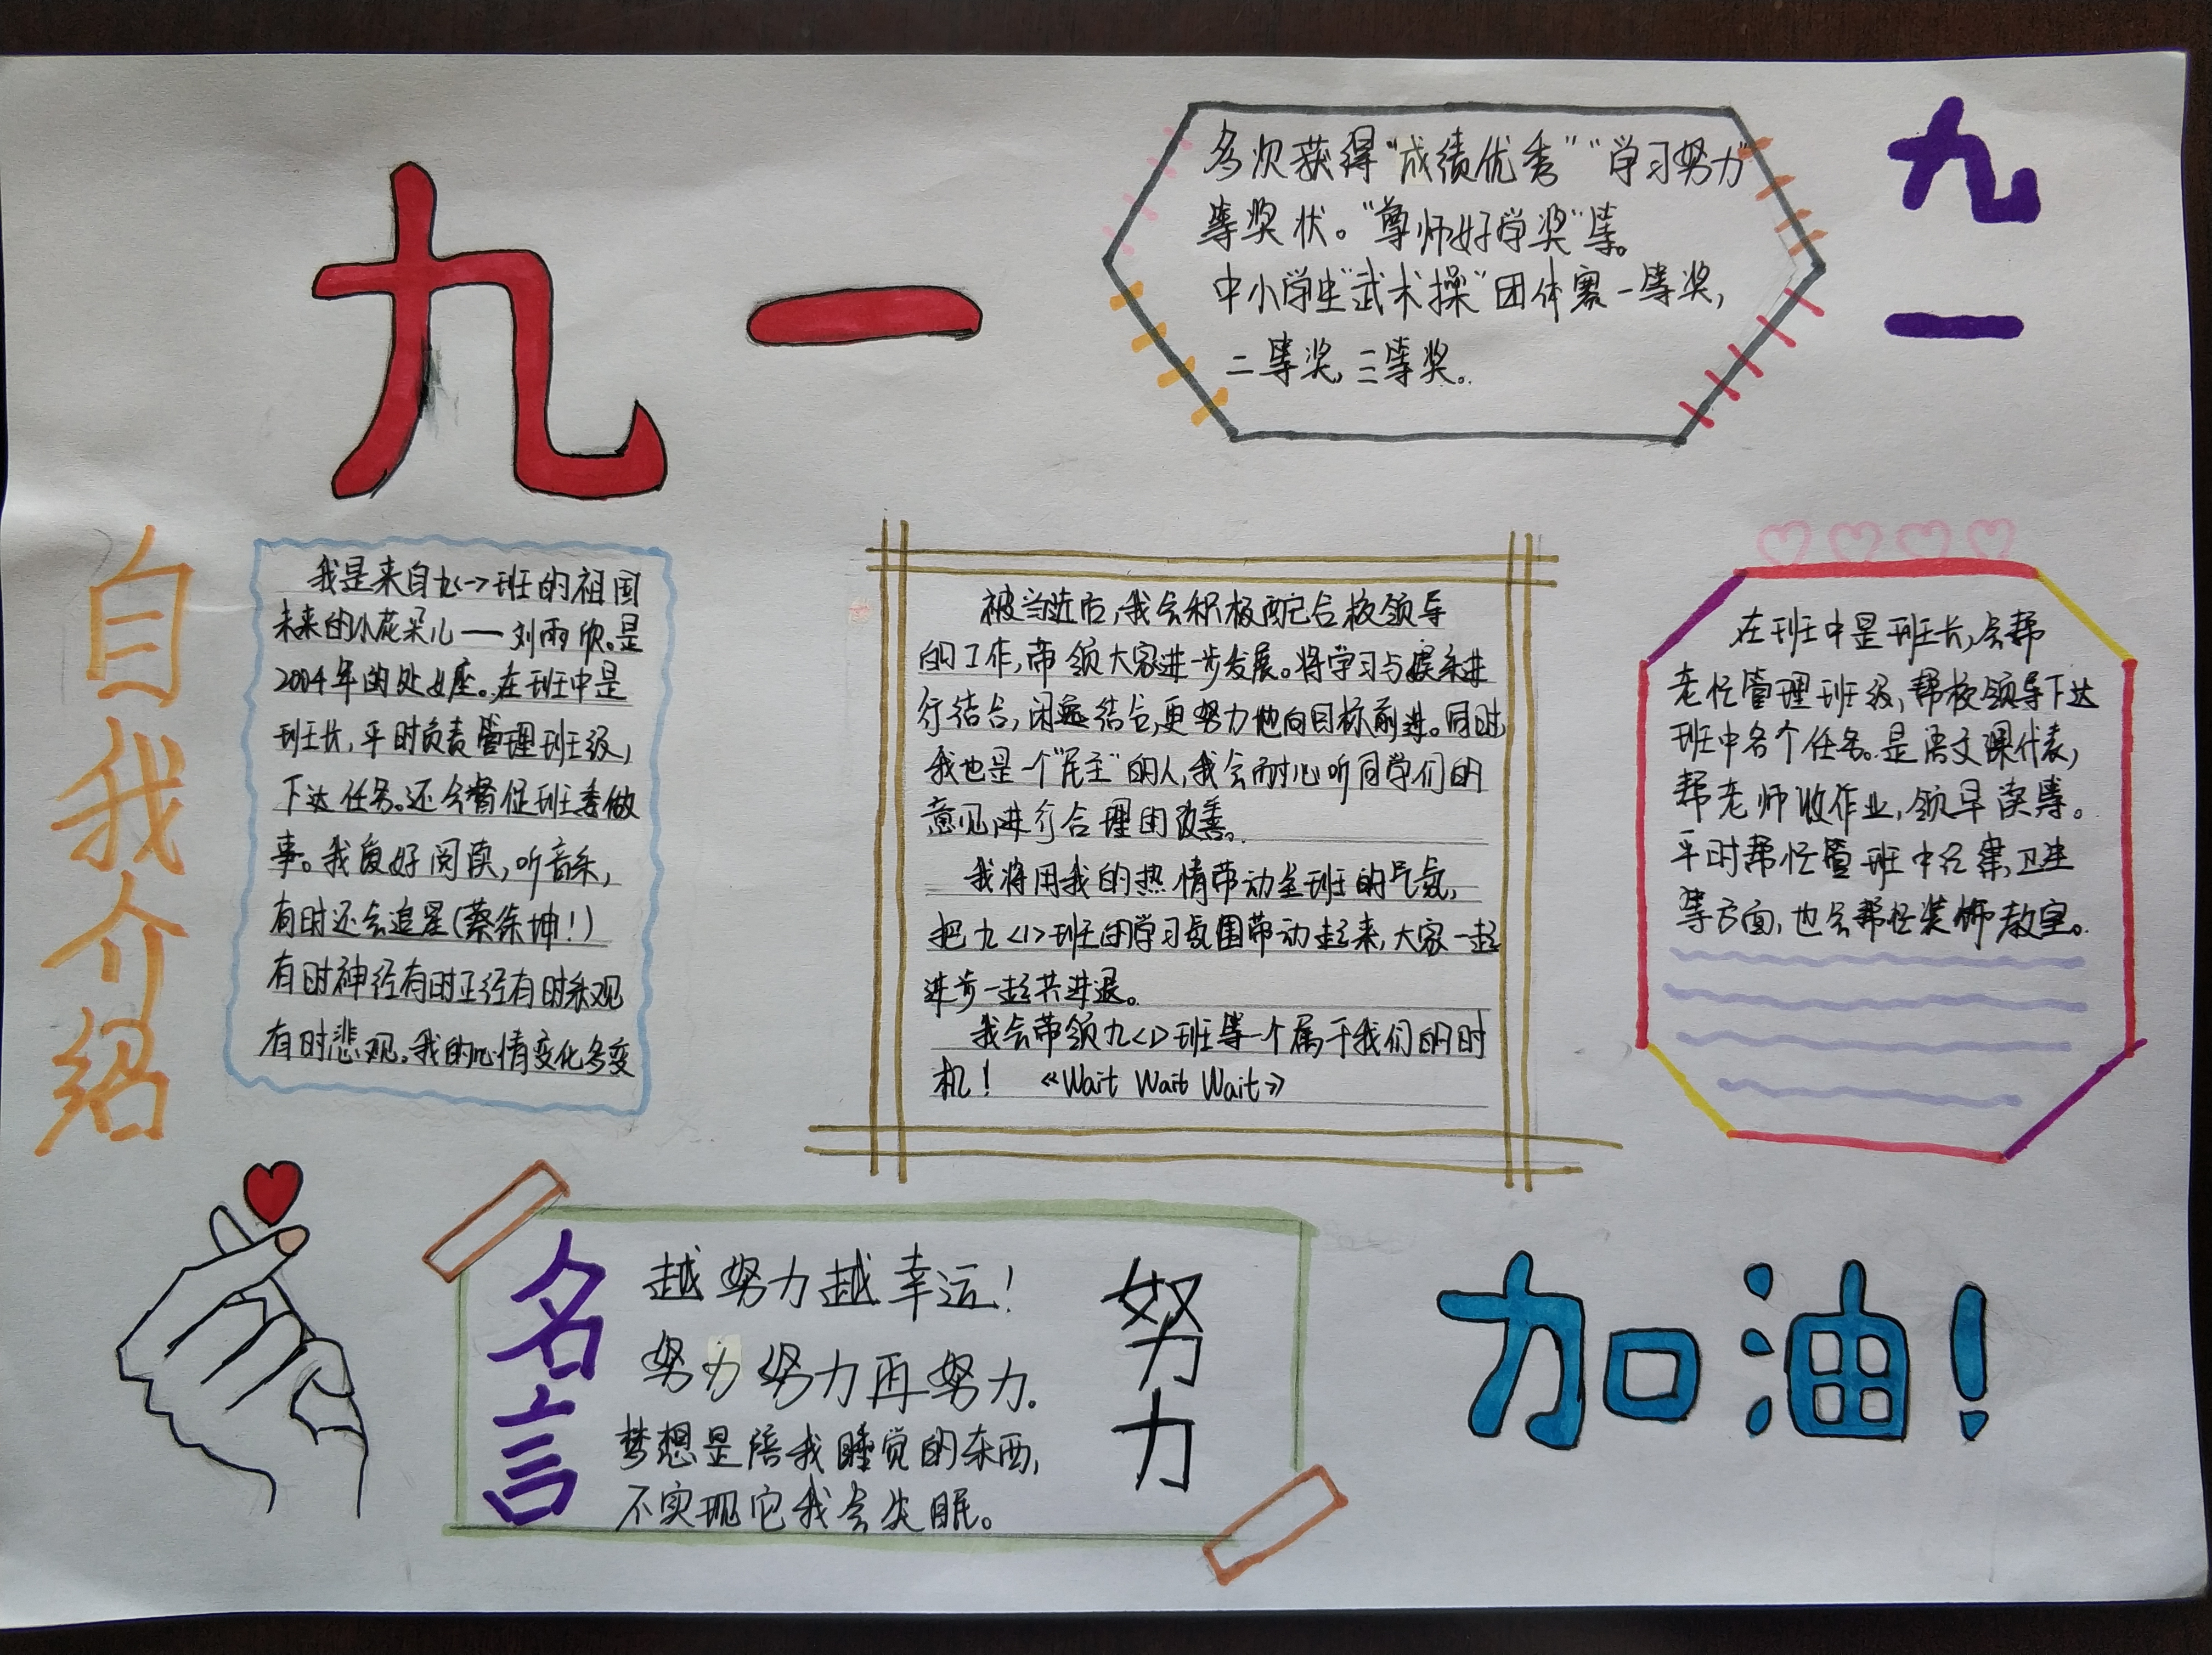 九一
多次获得“成绩优秀”“学习努力”
等奖状。“尊师好学奖”等。
中小学生“武术操”团体赛一等奖,
二等奖,三等奖。
九一
自我介绍
我是来自九<一>班的祖国
未来的小花朵儿——刘雨欣。是
2004年的处女座。在班中是
班长,平时负责管理班级,
下达任务。还会督促班委做
事。我爱好阅读,听音乐,
有时还会追星(蔡徐坤!)
有时神经有时正经有时乐观
有时悲观。我的心情变化多变
被当选后,我会积极配合校领导
的工作,带领大家进一步发展。将学习与娱乐进
行结合,闲逸结合,更努力地向目标前进。同时,
我也是一个“民主”的人,我会耐心听同学们的
意见进行合理的改善。
我将用我的热情带动全班的气氛,
把九<1>班的学习氛围带动起来,大家一起
进步一起共进退。
我会带领九<1>班等一个属于我们的时
机! 《Wait Wait Wait》
在班中是班长,会帮
老忙管理班级,帮校领导下达
班中各个任务。是语文课代表,
帮老师收作业,领早读等。
平时帮忙管班中纪律,卫生
等方面,也会帮忙装饰教室。
名言
越努力越幸运!
努力努力再努力.
梦想是陪我睡觉的东西,
不实现它我会失眠。
努力
加油!